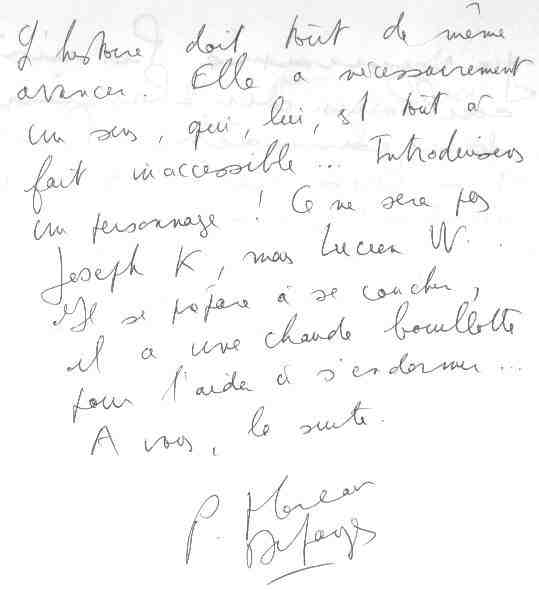 L'histoire doit tout de même
avancer. Elle a nécessairement
un sens, qui, lui, est tout à
fait inaccessible... Introduisons
un personnage ! Ce ne sera pas
Joseph K, mais Lucien W.
Il se prépare à se coucher,
il a une chaude bouillotte
pour l'aider à s'endormir...
A vous, la suite.
P. Moreau
Defarges